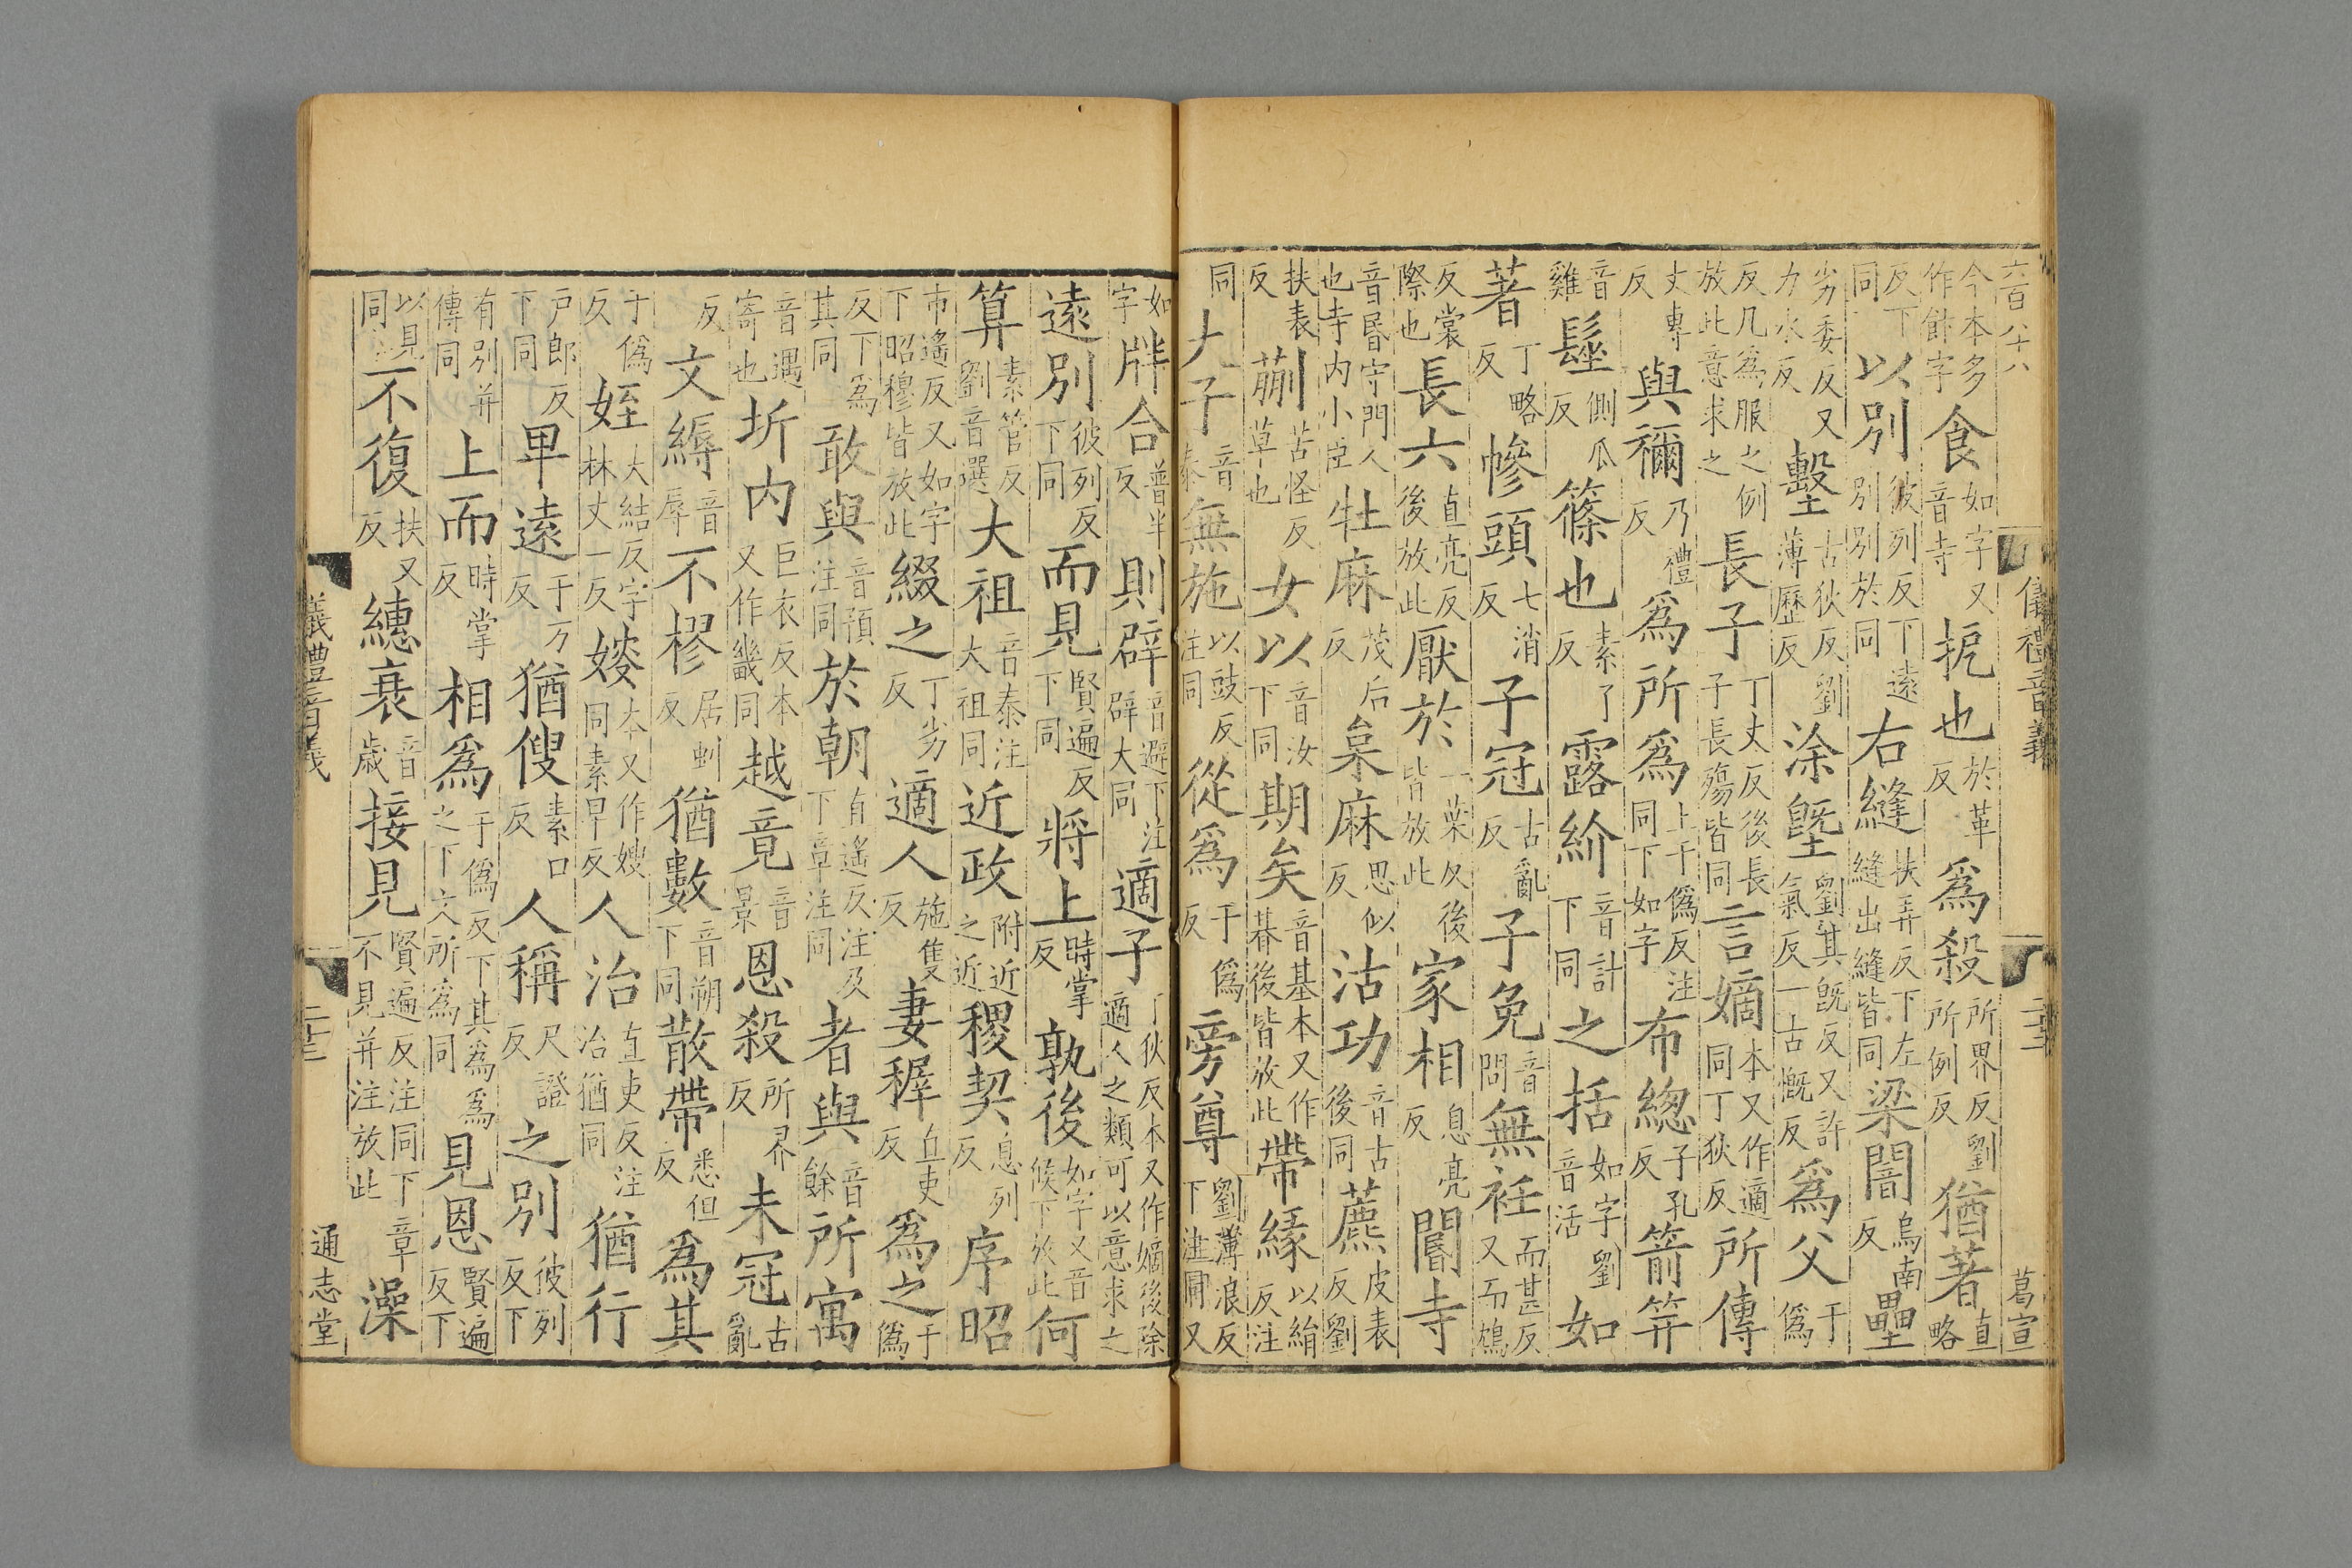 六百八十八 儀禮音義 二十三 葛宣
今本多作飰字食如字又音寺搤也於革反爲殺所界反劉所例反猶著直略
反下同以別彼列反下遠別別於同右縫扶弄反下左縫出縫皆同梁闇烏南反壘
劣委反又力水反墼古狄反劉薄歷反涂墍劉其旣反又許氣反一古慨反爲父于爲
反凡爲服之例放此意求之長子丁丈反後長子長殤皆同言嫡本又作適同丁狄反所傳
丈專反與禰乃禮反爲所爲上于僞反注同下如字布緫子孔反箭笄
音雞髽側瓜反篠也素了反露紒音計下同之括如字劉音活如
著丁略反幓頭七消反子冠古亂反子免音問無衽而甚反又而鴆
反裳際也長六直亮反後放此厭於一葉反後皆放此家相息亮反閽寺
音昏守門人也寺內小臣牡麻茂后反枲麻思似反沽功音古後同藨皮表反劉
扶表反蒯苦怪反草也女以音汝下同期矣音基本又作朞後皆放此帶緣以絹反注
同大子音泰無施以豉反注同從爲于僞反旁尊劉薄浪反下注同又
如字牉合普半反則辟音避下注辟大同適子丁狄反本又作嫡後除適人之類可以意求之
遠別彼列反下同而見賢遍反下同將上時掌反孰後如字又音候下放此何
算素管反劉音選大祖音泰注大祖同近政附近之近稷契息列反序昭
市遙反又如字下昭穆皆放此綴之丁劣反適人施隻反妻稺直吏反爲之于僞
反下爲其同敢與音預注同於朝直遙反注及下章注同者與音餘所寓
音遇寄也圻內巨衣反本又作畿同越竟音景恩殺所界反未冠古亂
反文縟音辱不樛居虯反猶數音朔下同散帶悉但反爲其
于僞反姪大結反字林丈一反㛮本又作嫂同素早反人治直吏反注治猶同猶行
戶郎反下同卑遠于万反猶傁素口反人稱尺證反之別彼列反下
有別并傳同上而時掌反相爲于僞反下其爲爲之下文所爲同見恩賢遍反下
以見同不復扶又反繐衰音歲接見賢遍反注同下章不見并注放此澡
儀禮音義 二十三 通志堂